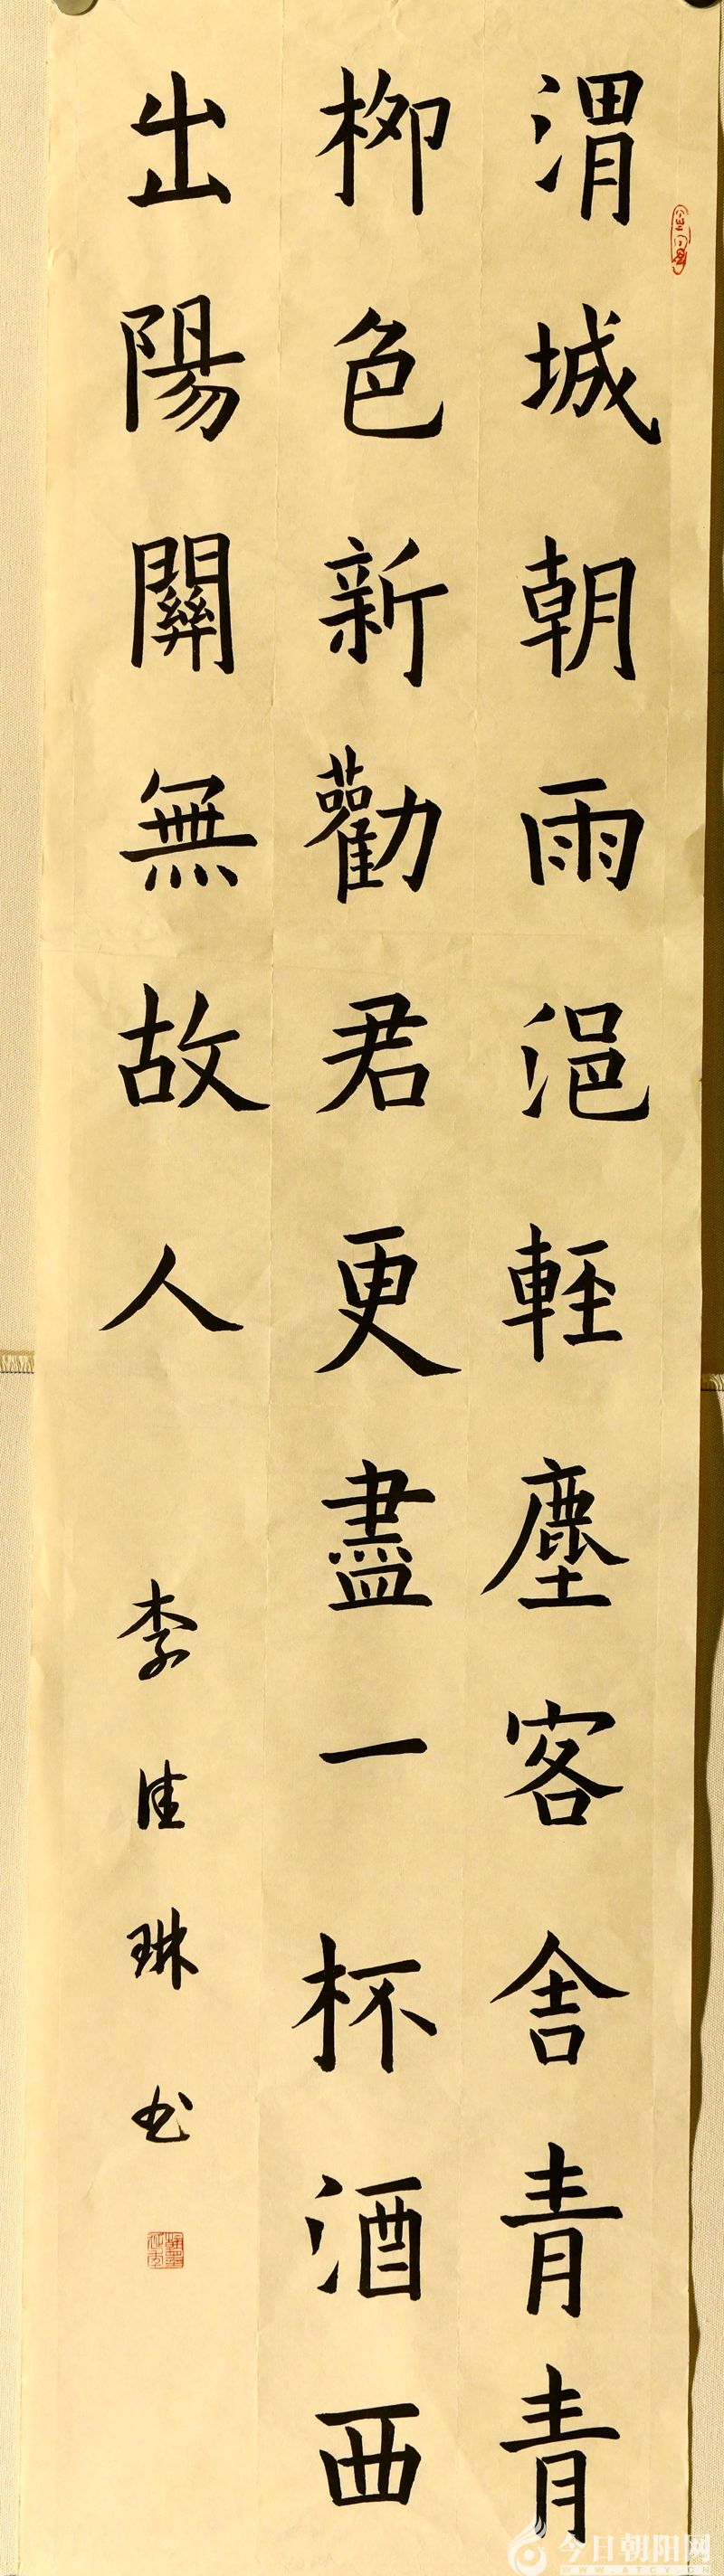 渭城朝雨浥輕塵客舍青青
柳色新勸君更盡一杯酒西
出陽關無故人
李佳琳书
今日朝阳网